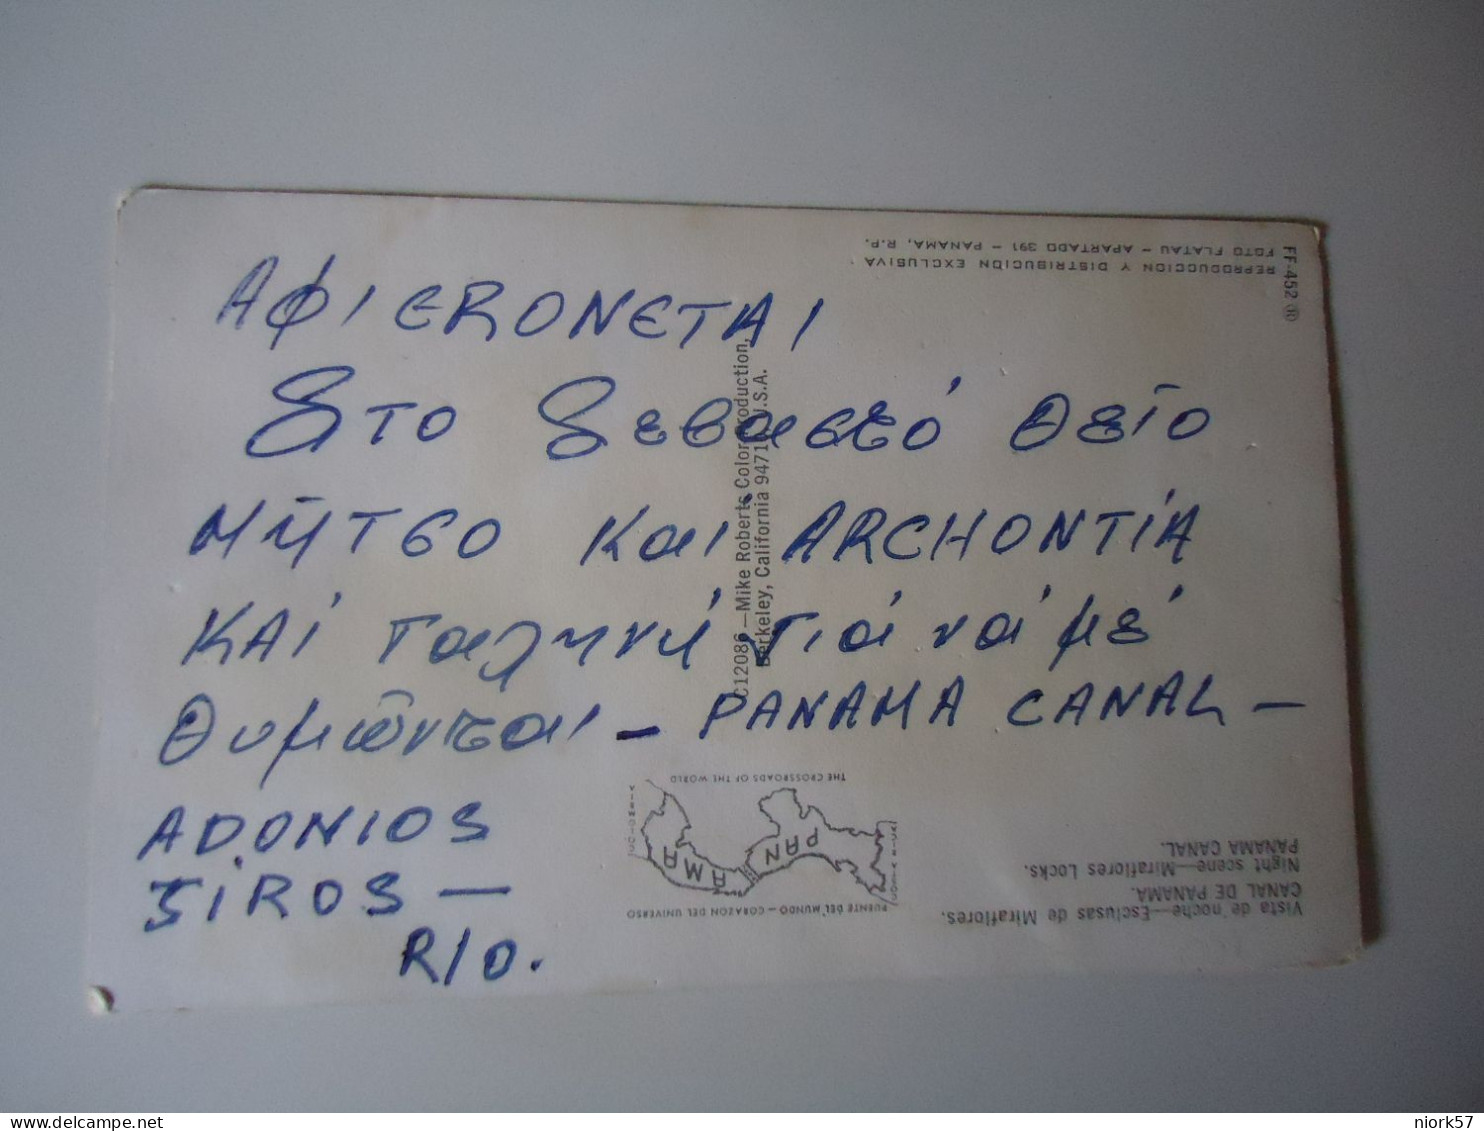 ΑΦΙERONETAI
Στο Σεβαστό Θείο
Μήτσο Και ARCHONTÍA
ΚΑΙ Γαληνή γιά νά μέ
Θυμῶνται – PANAMA CANAL –
ADONIOS
SIROS –
RIO.
FF-452 ®
REPRODUCCION Y DISTRIBUCIÓN EXCLUSIVA
FOTO FLATAU – APARTADO 391 – PANAMA, R.P.
C12086—Mike Roberts Color Production,
Berkeley, California 94710 U.S.A.
Vista de noche—Esclusas de Miraflores.
CANAL DE PANAMA.
Night scene—Miraflores Locks.
PANAMA CANAL.
PUENTE DEL MUNDO – CORAZON DEL UNIVERSO
PAN AMA
THE CROSSROADS OF THE WORLD
niork57